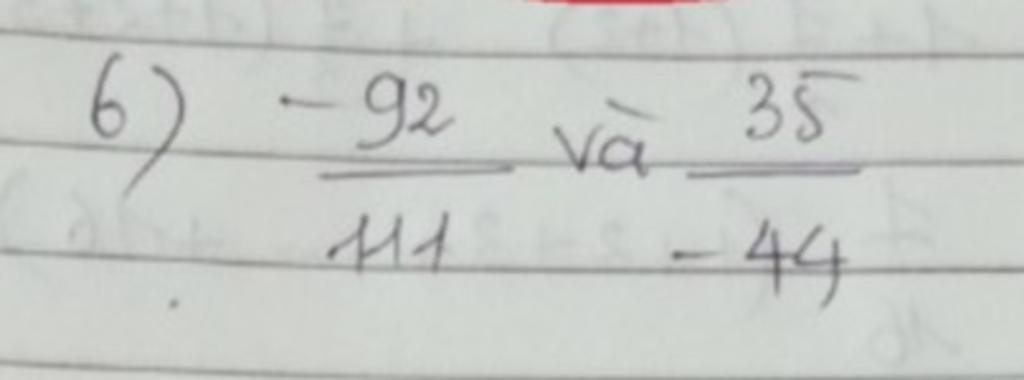 6) -92/111 và 35/-44